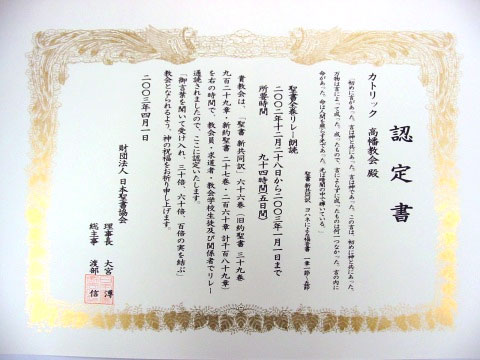 認定書
カトリック 高幡教会 殿
「初めに言があった。言は神と共にあった。言は神であった。この言は、初めに神と共にあった。
万物は言によって成った。成ったもので、言によらずに成ったものは何一つなかった。言の内に
命があった。命は人間を照らす光であった。光は暗闇の中で輝いている。」
聖書 新共同訳 ヨハネによる福音書 一章一節~五節
聖書全巻リレー朗読
二〇〇二年十二月二十八日から二〇〇三年一月一日まで
所要時間 九十四時間(五日間)
貴教会は、『聖書 新共同訳』六十六巻(旧約聖書 三十九巻
九百二十九章・新約聖書 二十七巻・二百六十章 計千百八十九章)
を右の時間で、教会員・求道者・教会学校生徒及び関係者でリレー
通読されましたので、ここに認定いたします。
「御言葉を聞いて受け入れ、三十倍、六十倍、百倍の実を結ぶ」
教会となられるよう、神の祝福をお祈り申し上げます。
二〇〇三年四月一日
財団法人 日本聖書協会
理事長 大宮 溥
総主事 渡部 信